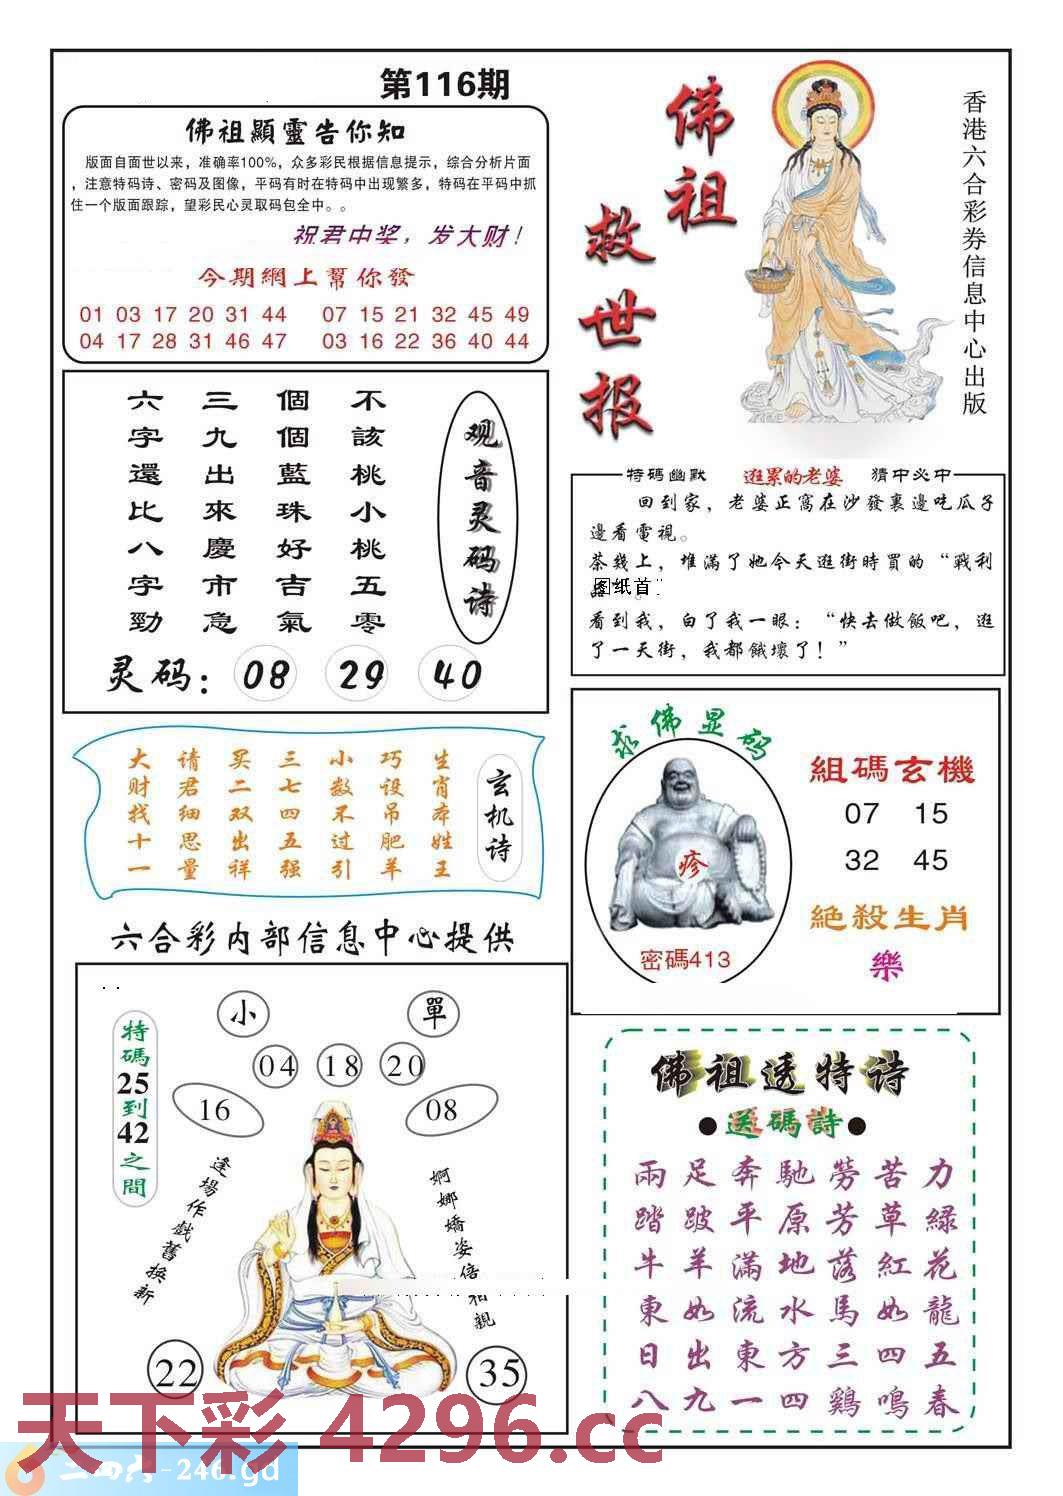 第116期
佛祖顯靈告你知
版面自面世以来，准确率100%，众多彩民根据信息提示，综合分析片面
，注意特码诗、密码及图像，平码有时在特码中出现繁多，特码在平码中抓
住一个版面跟踪，望彩民心灵取码包全中。。
祝君中奖，发大财！
今期網上幫你發
01 03 17 20 31 44 07 15 21 32 45 49
04 17 28 31 46 47 03 16 22 36 40 44
佛祖
救世报
香港六合彩券信息中心出版
观音灵码诗
不該桃小桃五零
個個藍珠好吉氣
三九出來慶市急
六字還比八字勁
灵码：08 29 40
特碼幽默 逛累的老婆 猜中必中
回到家，老婆正窩在沙發裏邊吃瓜子
邊看電視。
茶幾上，堆滿了她今天逛街時買的“戰利
图纸首
看到我，白了我一眼：“快去做飯吧，逛
了一天街，我都餓壞了！”
玄机诗
生肖本姓王
巧设吊肥羊
小数不过引
三七四五强
买二双出祥
请君细思量
大财找十一
求佛显码
疹
密碼413
組碼玄機
07 15
32 45
絕殺生肖
樂
六合彩内部信息中心提供
小 單
04 18 20
16 08
特碼25到42之間
逢場作戲舊换新
婀娜嬌姿倍相親
22 35
佛祖透特诗
●送碼詩●
兩足奔馳勞苦力
踏跛平原芳草緑
牛羊滿地落紅花
東如流水馬如龍
日出東方三四五
八九一四鷄鳴春
天下彩 4296.cc
二四六-246.gd